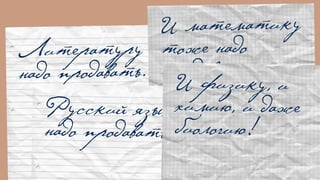 Литературу
надо продавать.
Русский язы
надо продават
И математику
тоже надо
И физику, и
химию, и даже
биологию!